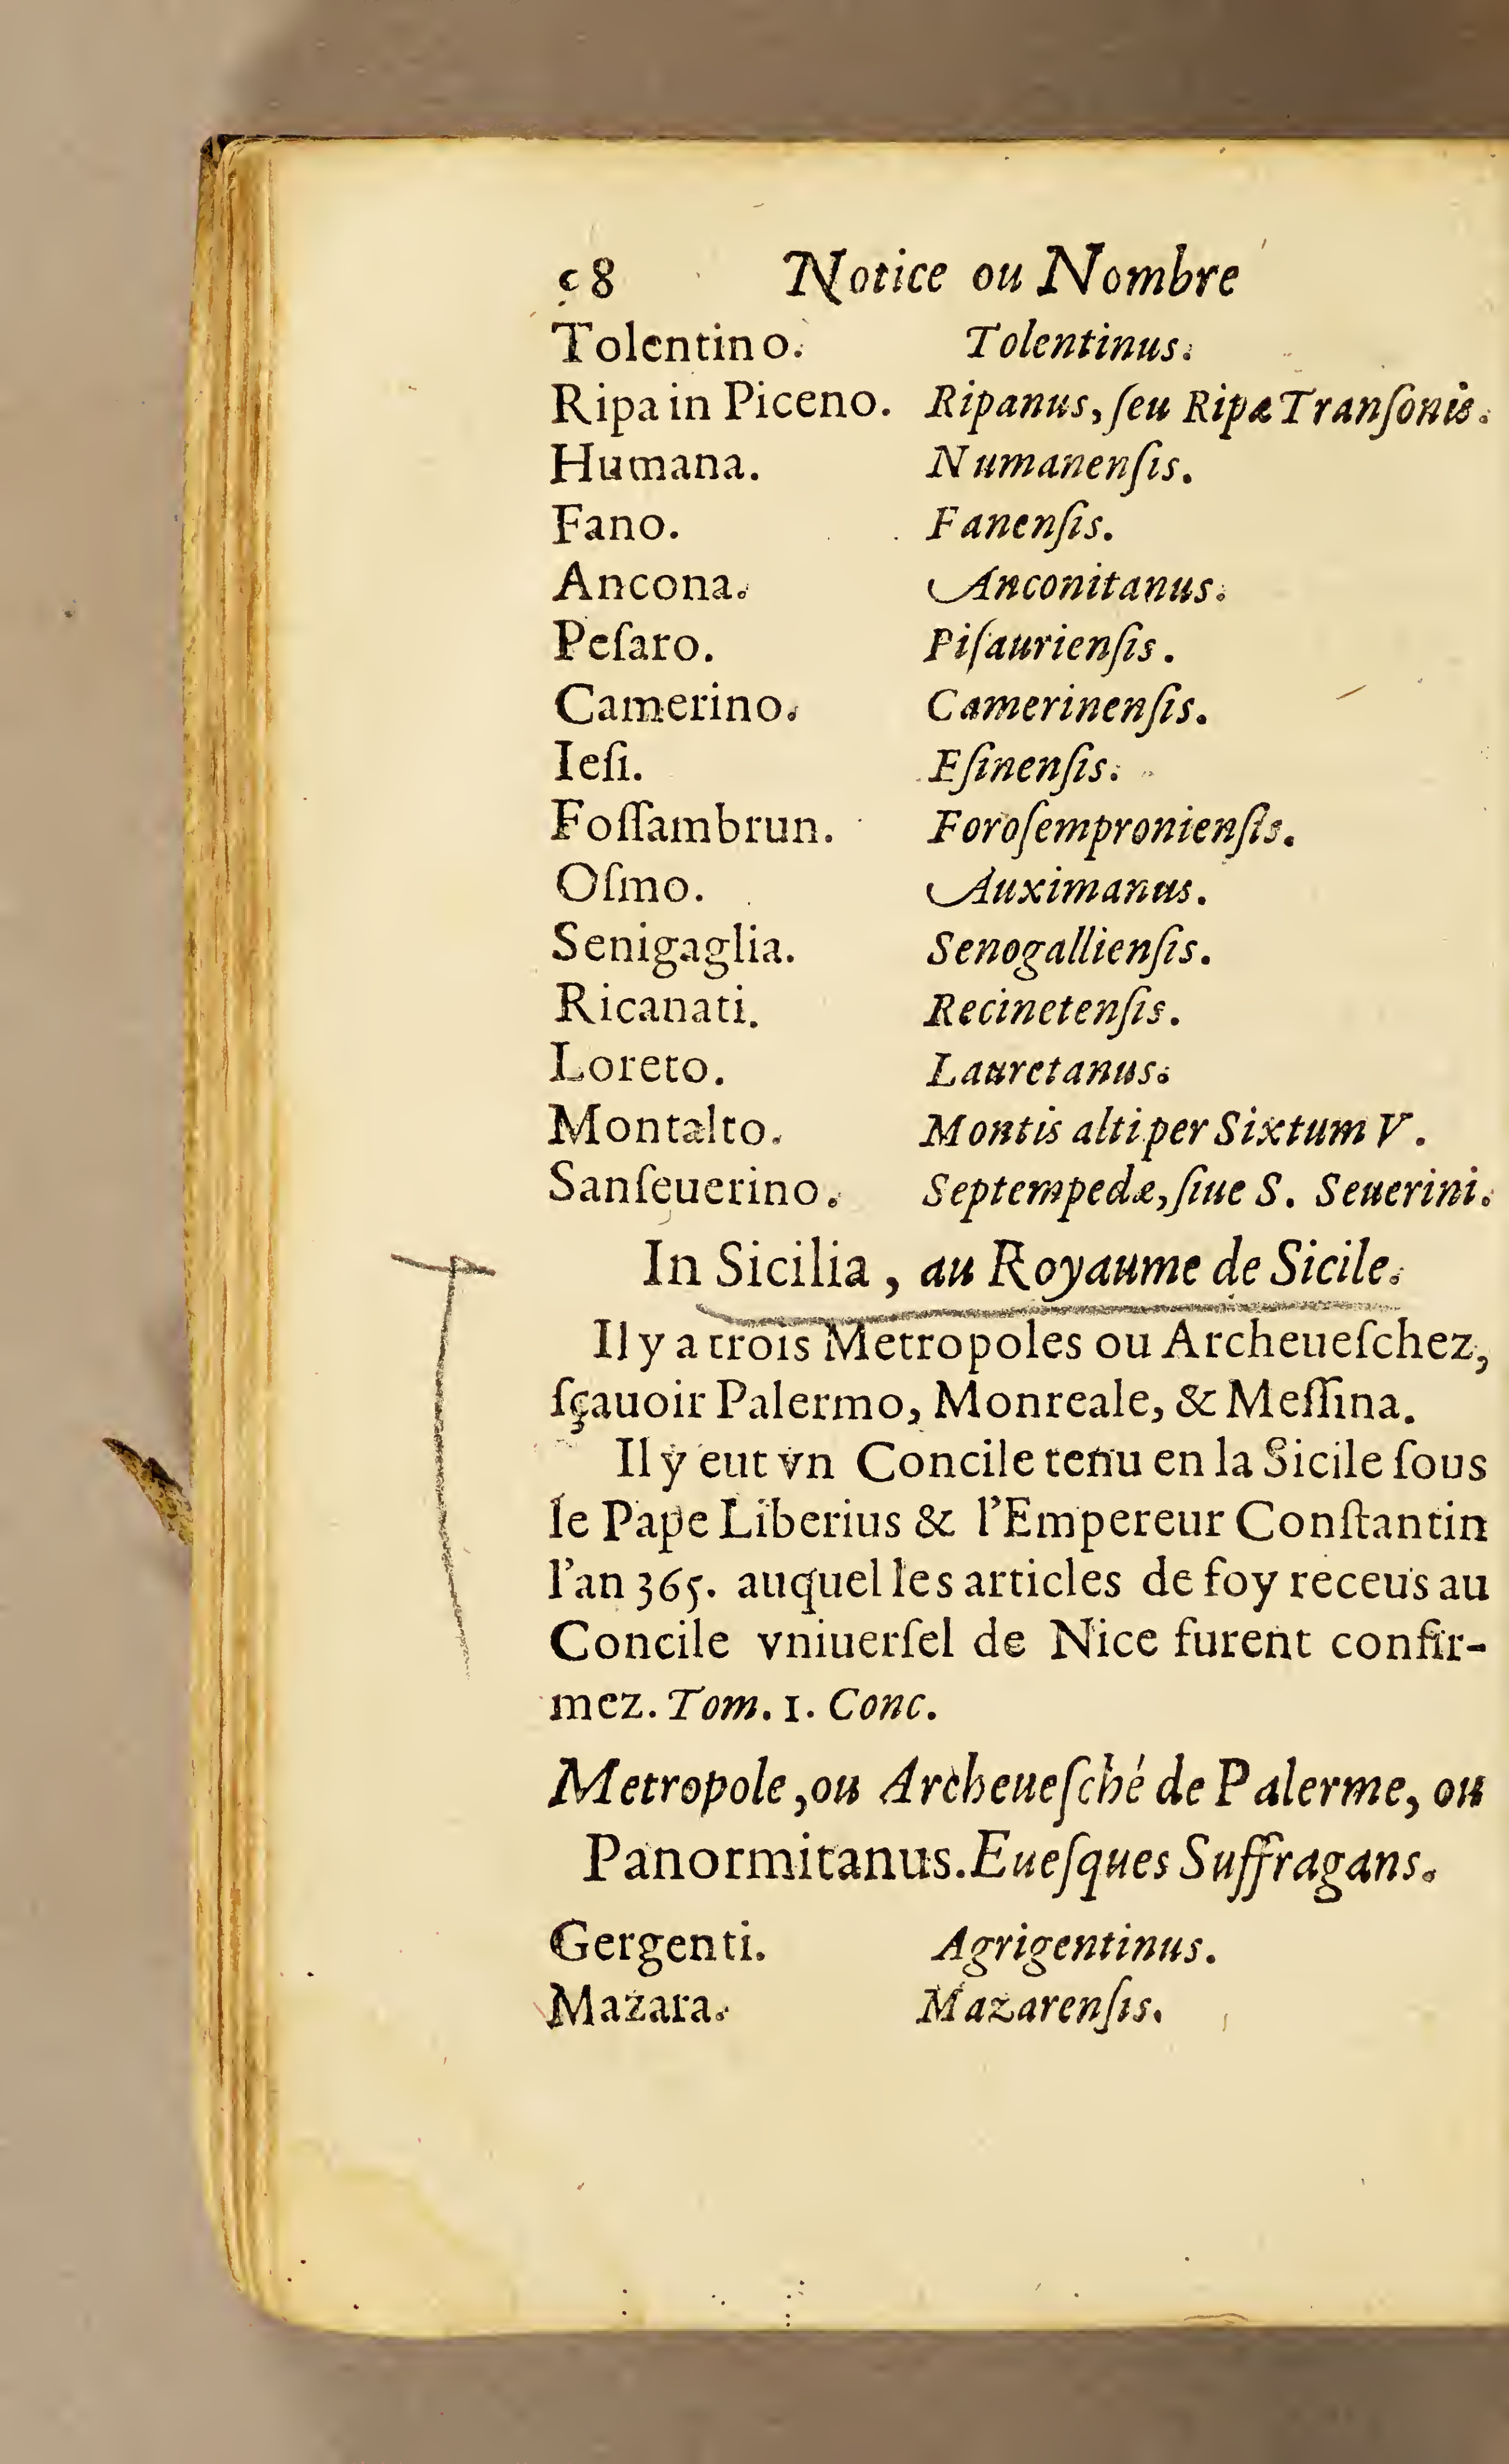 58 Notice ou Nombre
Tolentino. Tolentinus.
Ripa in Piceno. Ripanus, ſeu Ripæ Tranſonis.
Humana. Numanenſis.
Fano. Fanenſis.
Ancona. Anconitanus.
Peſaro. Piſaurienſis.
Camerino. Camerinenſis.
Ieſi. Eſinenſis.
Foſſambrun. Foroſempronienſis.
Oſmo. Auximanus.
Senigaglia. Senogallienſis.
Ricanati. Recinetenſis.
Loreto. Lauretanus.
Montalto. Montis alti per Sixtum V.
Sanſeuerino. Septempedæ, ſiue S. Seuerini.
In Sicilia, au Royaume de Sicile.
Il y a trois Metropoles ou Archeueſchez,
ſçauoir Palermo, Monreale, & Meſſina.
Il y eut vn Concile tenu en la Sicile ſous
le Pape Liberius & l'Empereur Conſtantin
l'an 365. auquel les articles de foy receus au
Concile vniuerſel de Nice furent confir-
mez. Tom. 1. Conc.
Metropole, ou Archeueſché de Palerme, ou
Panormitanus. Eueſques Suffragans.
Gergenti. Agrigentinus.
Mazara. Mazarenſis.